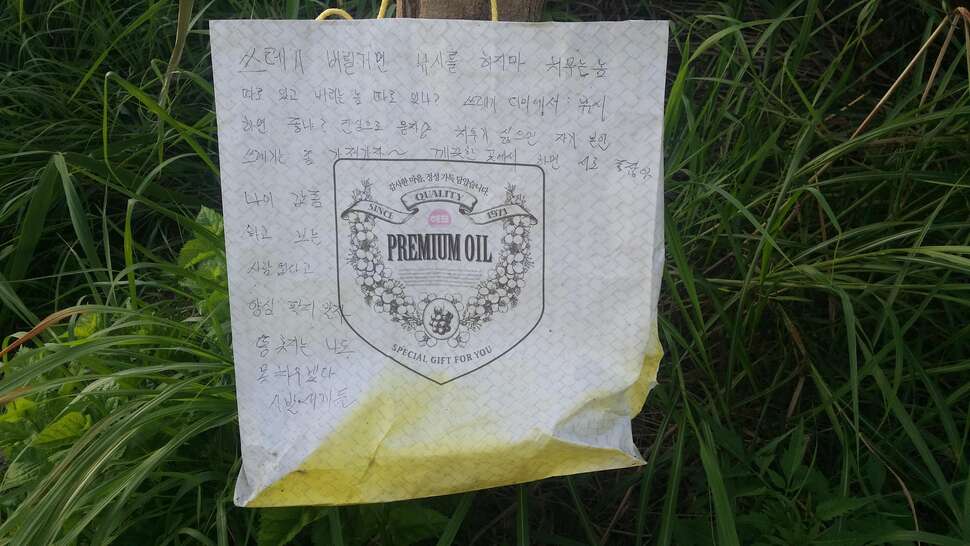 쓰레기 버릴거면 낚시를 하지마 치우는 놈
따로 있고 버리는 놈 따로 있냐? 쓰레기 더미에서 낚시
하면 좋냐? 진심으로 묻자. 치우기 싫으면 자기 본인
쓰레기는 좀 가져가자~ 깨끗한 곳에서 하면 서로 좋잖아
나이 값좀
하고 보는
사람 없다고
양심 팔지 말자
똥 치우는 나도
못 치우겠다
시발 새끼들
감사한 마음, 정성 가득 담았습니다.
QUALITY
SINCE 1971
PREMIUM OIL
SPECIAL GIFT FOR YOU